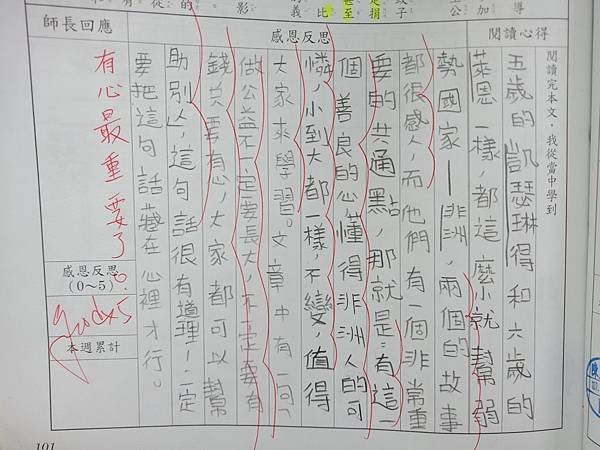 導
加
公
蚊子
是捐
甚至
比
義
影
的
從
有
閱讀心得
感恩反思
師長回應
閱讀完本文，我從當中學到
五歲的凱瑟琳得和六歲的
萊恩一樣，都這麼小就幫弱
勢國家——非洲，兩個的故事
都很感人，而他們有一個非常重
要的共通點，那就是：有這一
個善良的心，懂得非洲人的可
憐，小到大都一樣，不變值得
大家來學習。文章中有一句「
做公益不一定要長大，不一定要有
錢只要有心，大家都可以幫
助別人」，這句話很有道理！一定
要把這句話藏在心裡才行。
有心最重要了。
感恩反思
(0～5)
goodx5
本週累計
101
陳